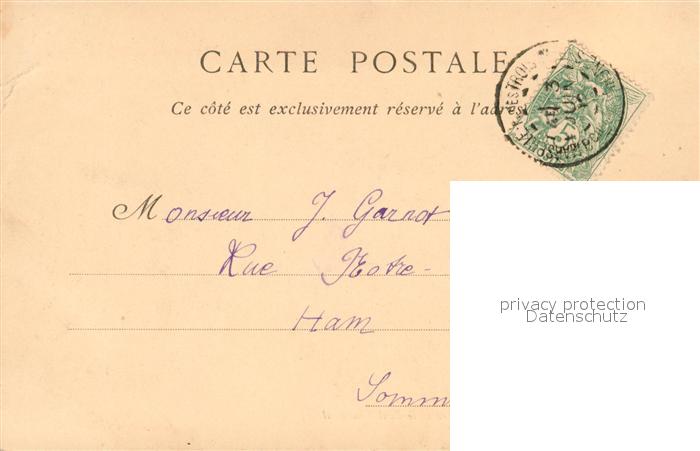 CARTE POSTALE
Ce côté est exclusivement réservé à l'adres
Monsieur J. Garnot
Rue Notre-
Ham
Somm
privacy protection
Datenschutz